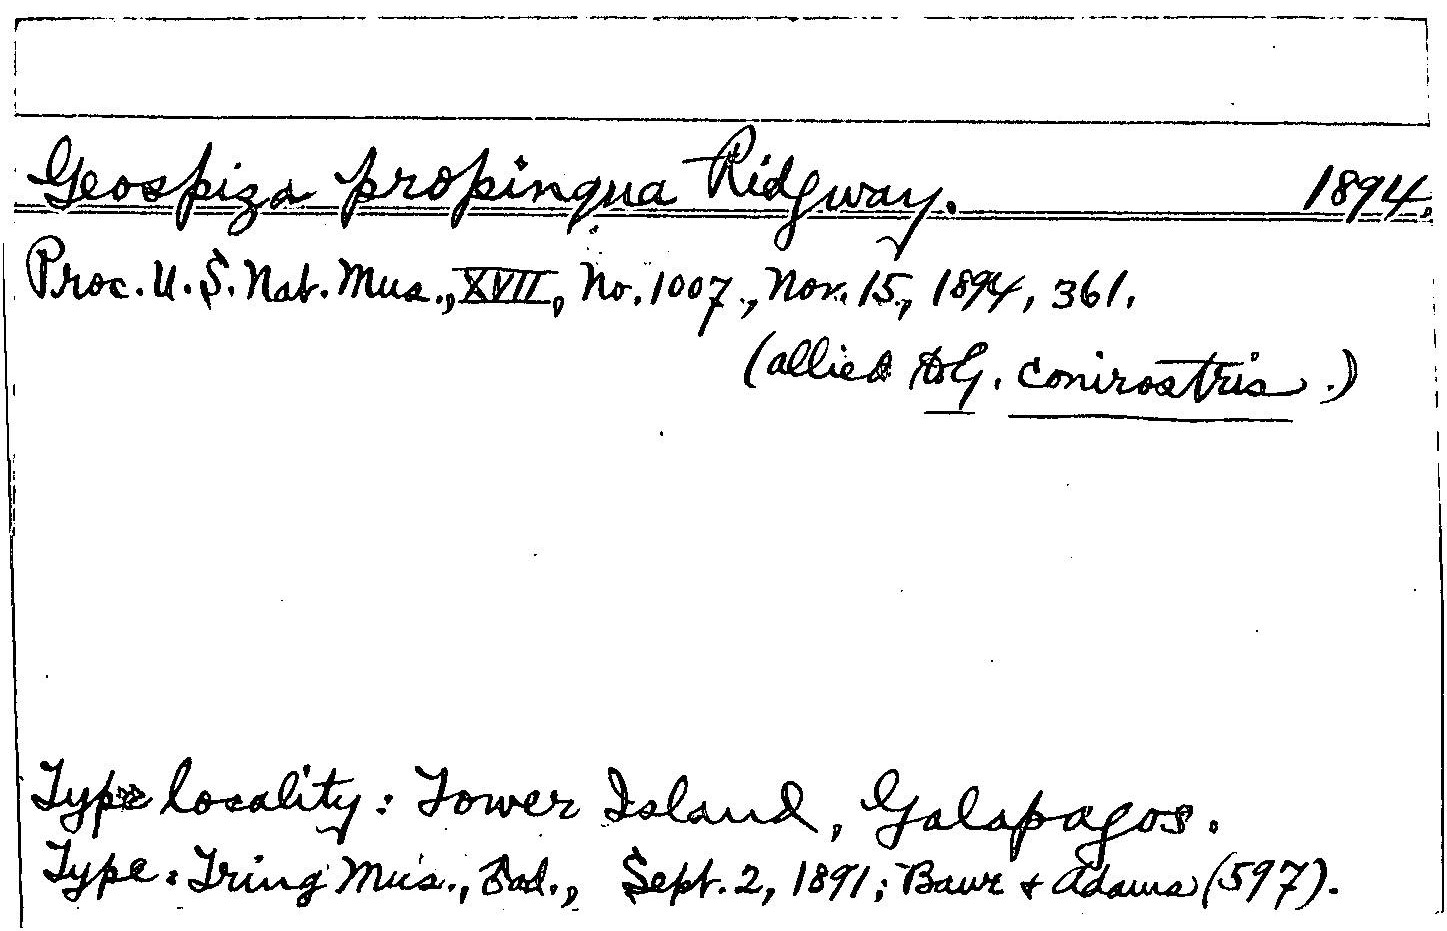 Geospiza propinqua Ridgway. 1894.
Proc. U. S. Nat. Mus., XVII, No. 1007, Nov. 15, 1894, 361.
(allied to G. conirostris.)
Type locality: Tower Island, Galapagos.
Type: Tring Mus., ad., Sept. 2, 1891; Baur & Adams (597).